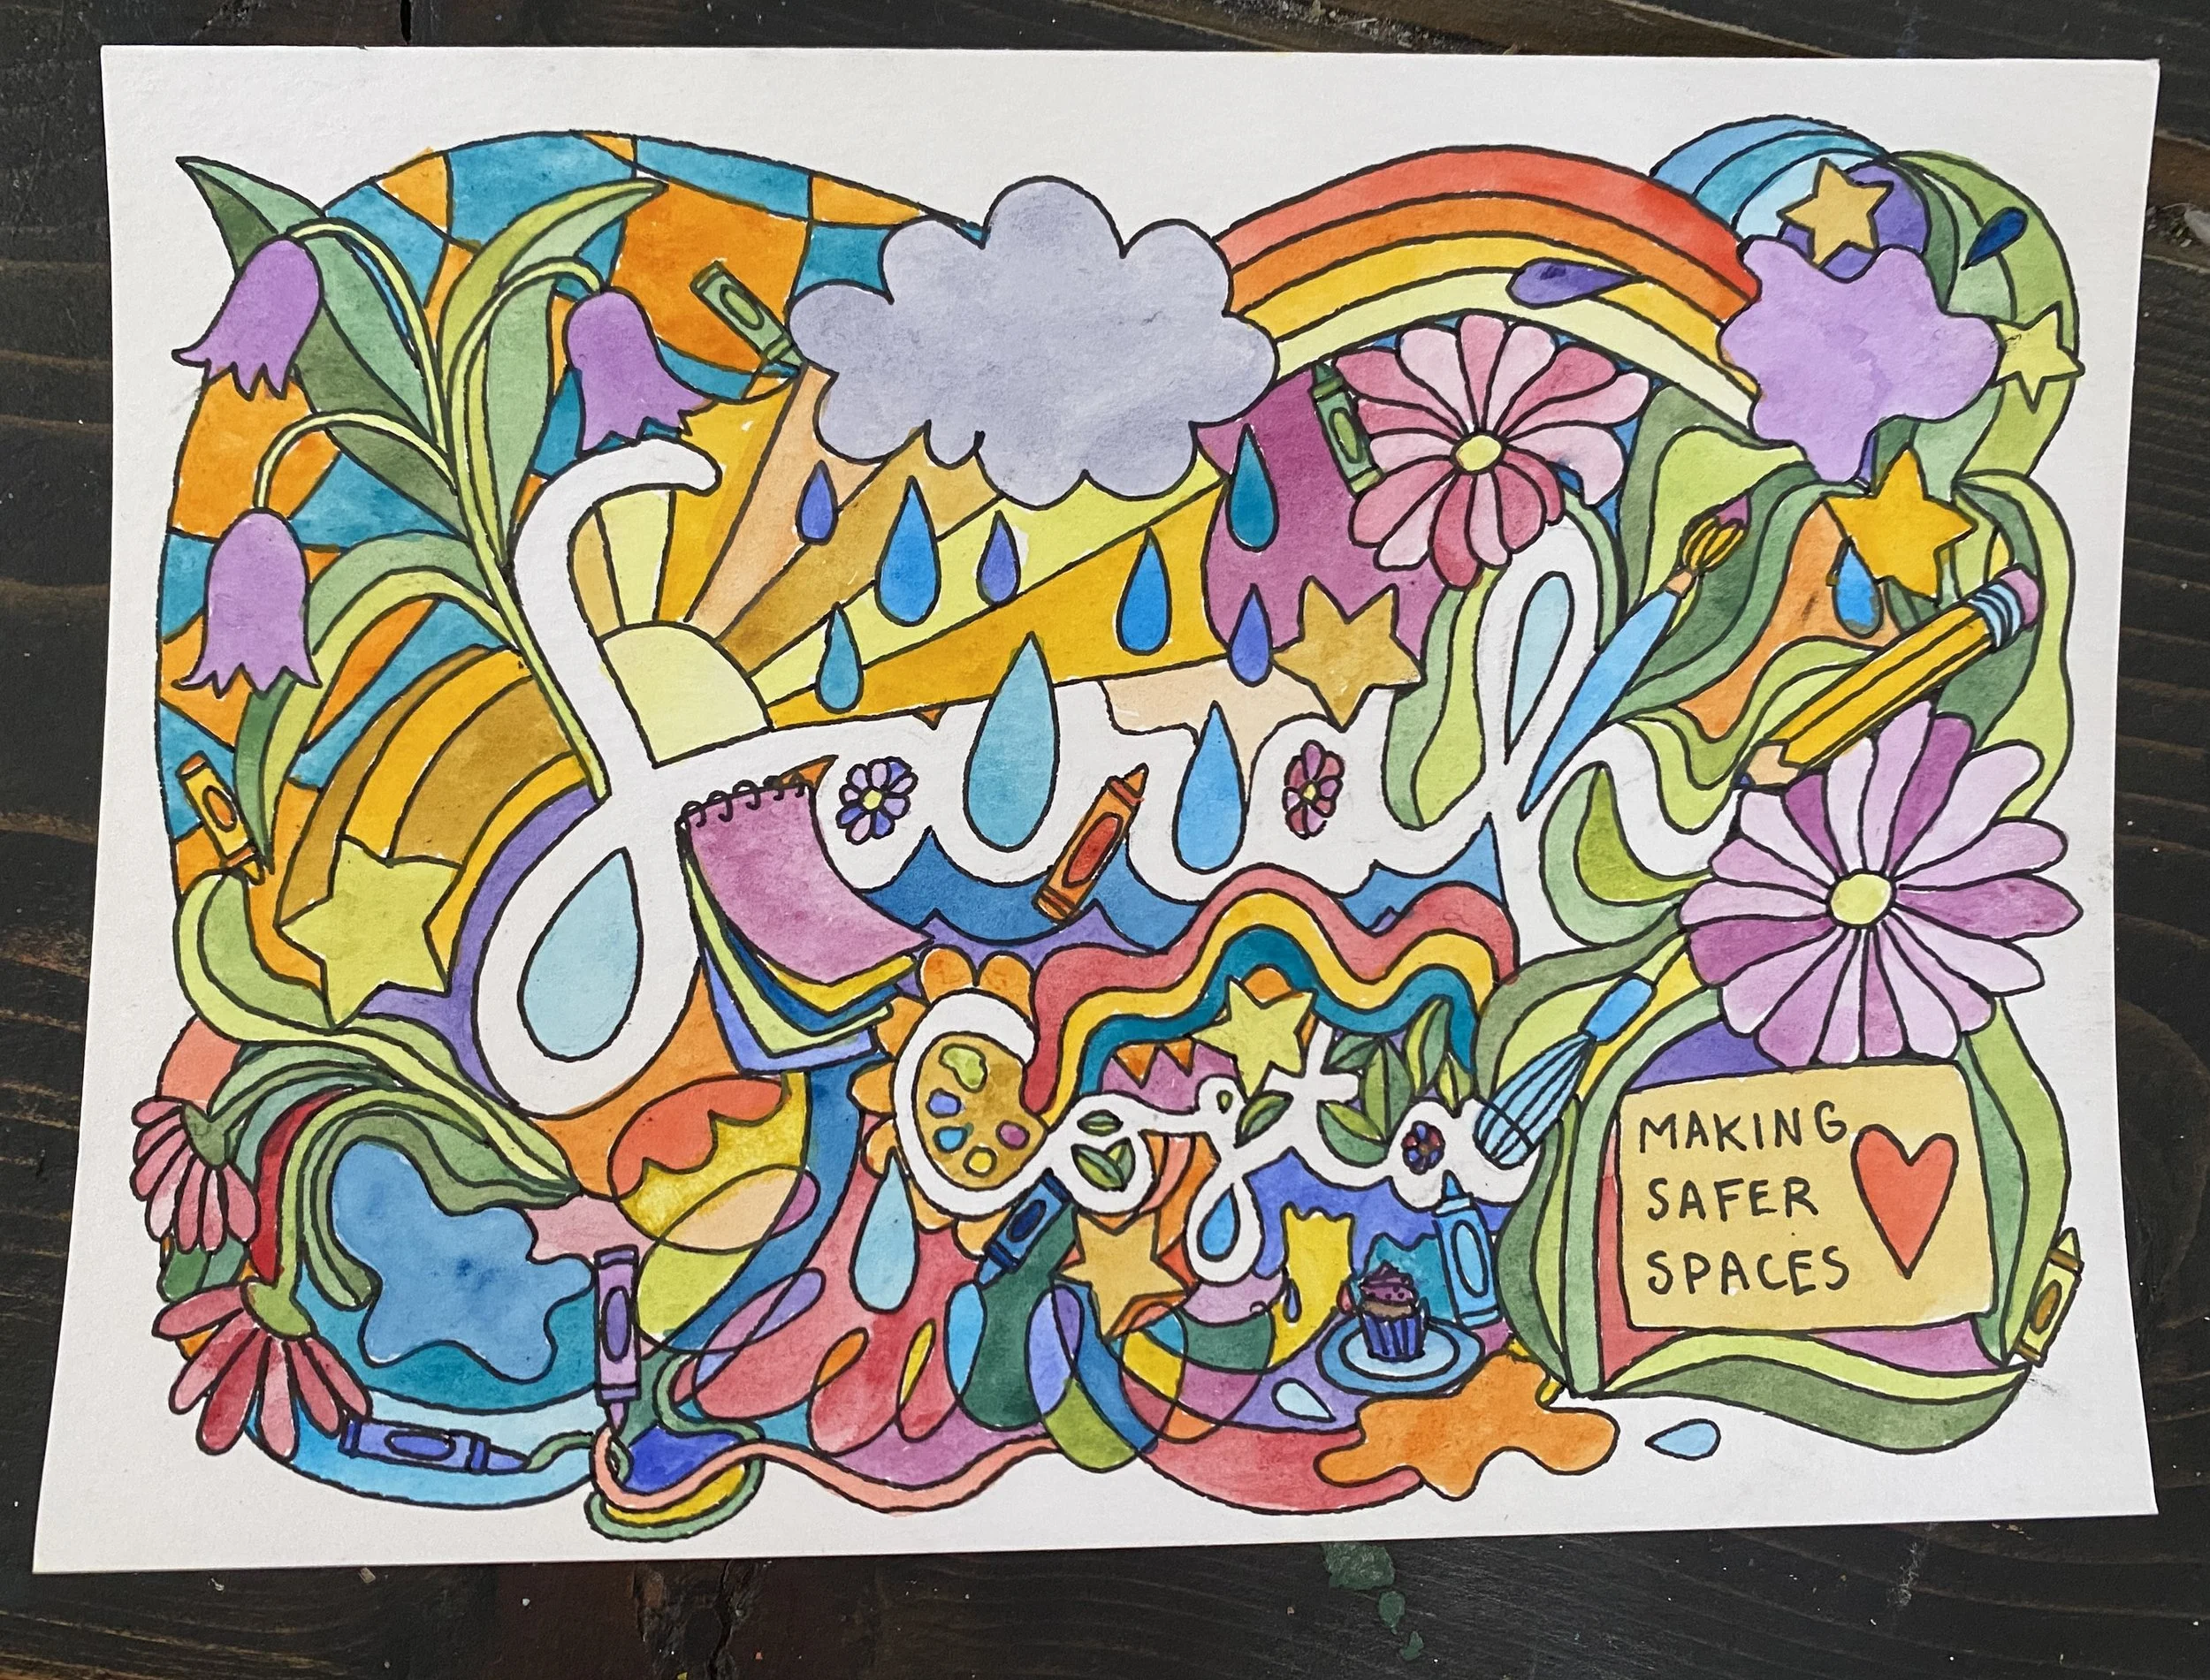 Sarah
Costa
MAKING
SAFER
SPACES